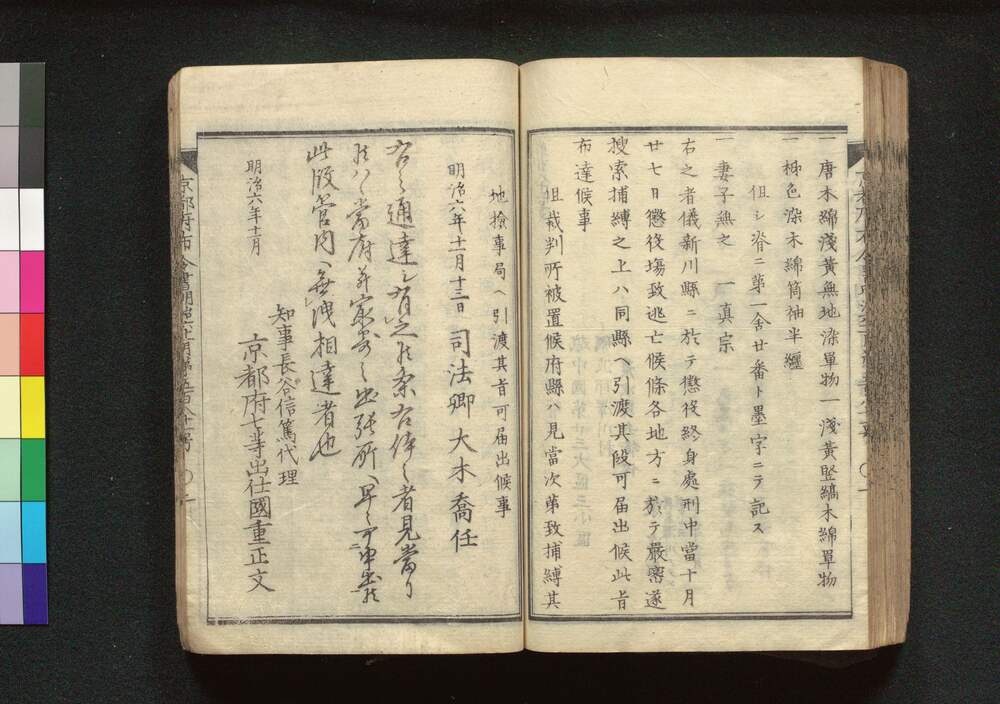 一唐木綿淺黃無地染單物一淺黃竪縞木綿單物
一柹色染木綿筒袖半纏
但シ脊ニ第一舍廿番ト墨字ニテ記ス
一妻子無之　一真宗
右之者儀新川縣ニ於テ懲役終身處刑中當十月
廿七日懲役塲致逃亡候條各地方ニ於テ嚴密遂
搜索捕縛之上ハ同縣ヘ引渡其段可届出候此旨
布達候事
但裁判所被置候府縣ハ見當次第致捕縛其
地檢事局ヘ引渡其旨可届出候事
明治六年十一月十三日　司法卿大木喬任
右之通達シ有之候条右体之者見當り
候ハヽ當府并最寄之出張所ヘ早々可申出候
此段管内ヘ無洩相達者也
明治六年十一月
知事長谷信篤代理
京都府七等出仕國重正文
京都府布令書明治六年